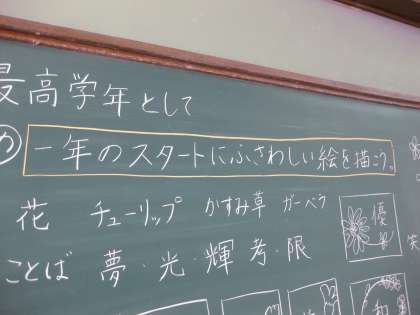 最高学年として
め 一年のスタートにふさわしい絵を描こう。
花 チューリップ かすみ草 ガーベラ
ことば 夢・光・輝 考・限
優
笑
和